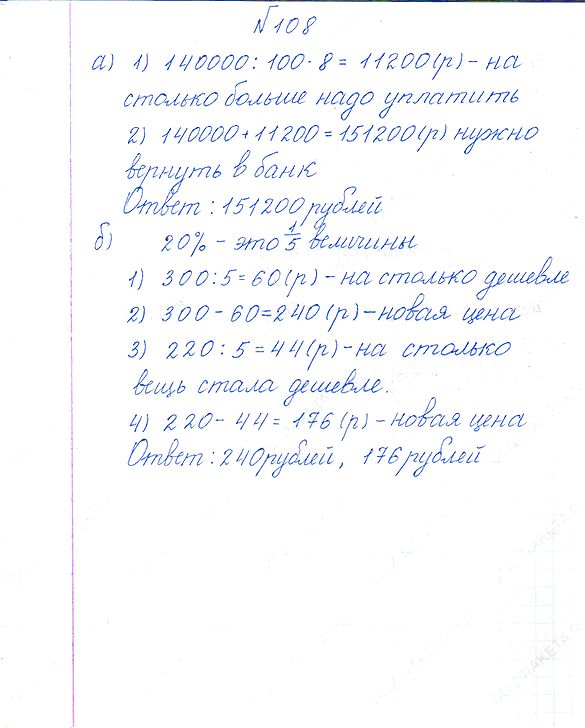 №108
а) 1) 140000 : 100 · 8 = 11200(р) – на
столько больше надо уплатить
2) 140000 + 11200 = 151200(р) нужно
вернуть в банк
Ответ : 151200 рублей
б) 20% – это 1/5 величины
1) 300 : 5 = 60(р) – на столько дешевле
2) 300 – 60 = 240 (р) – новая цена
3) 220 : 5 = 44(р) – на столько
вещь стала дешевле.
4) 220 – 44 = 176 (р) – новая цена
Ответ : 240 рублей, 176 рублей